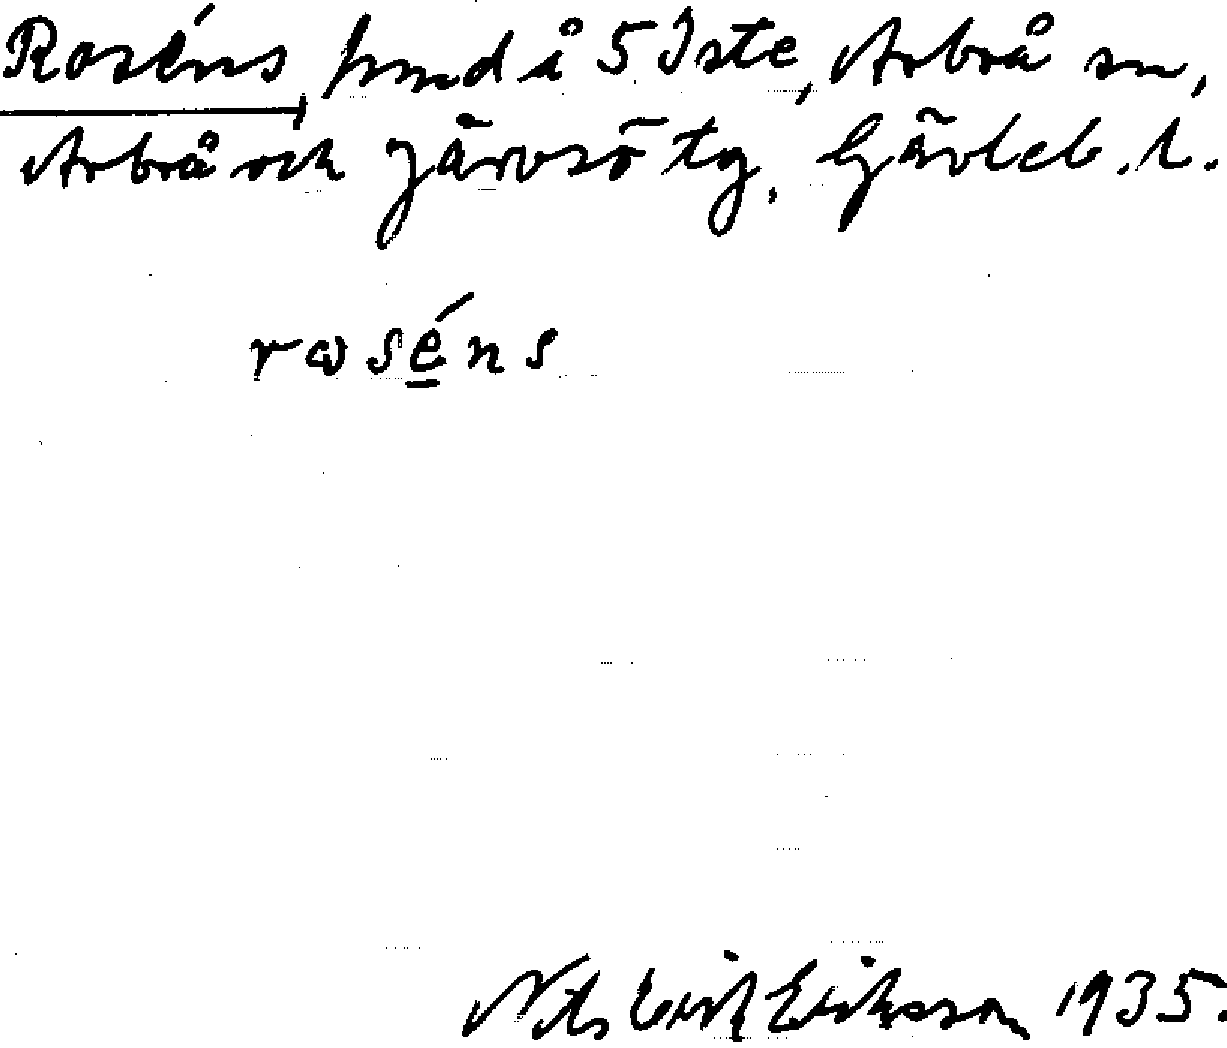 Roséns, hmd å 5 Iste, Arbrå sn,
Arbrå och Järvsö tg, Gävleb. l.
rɷséns
Nils Erik Eriksson 1935.